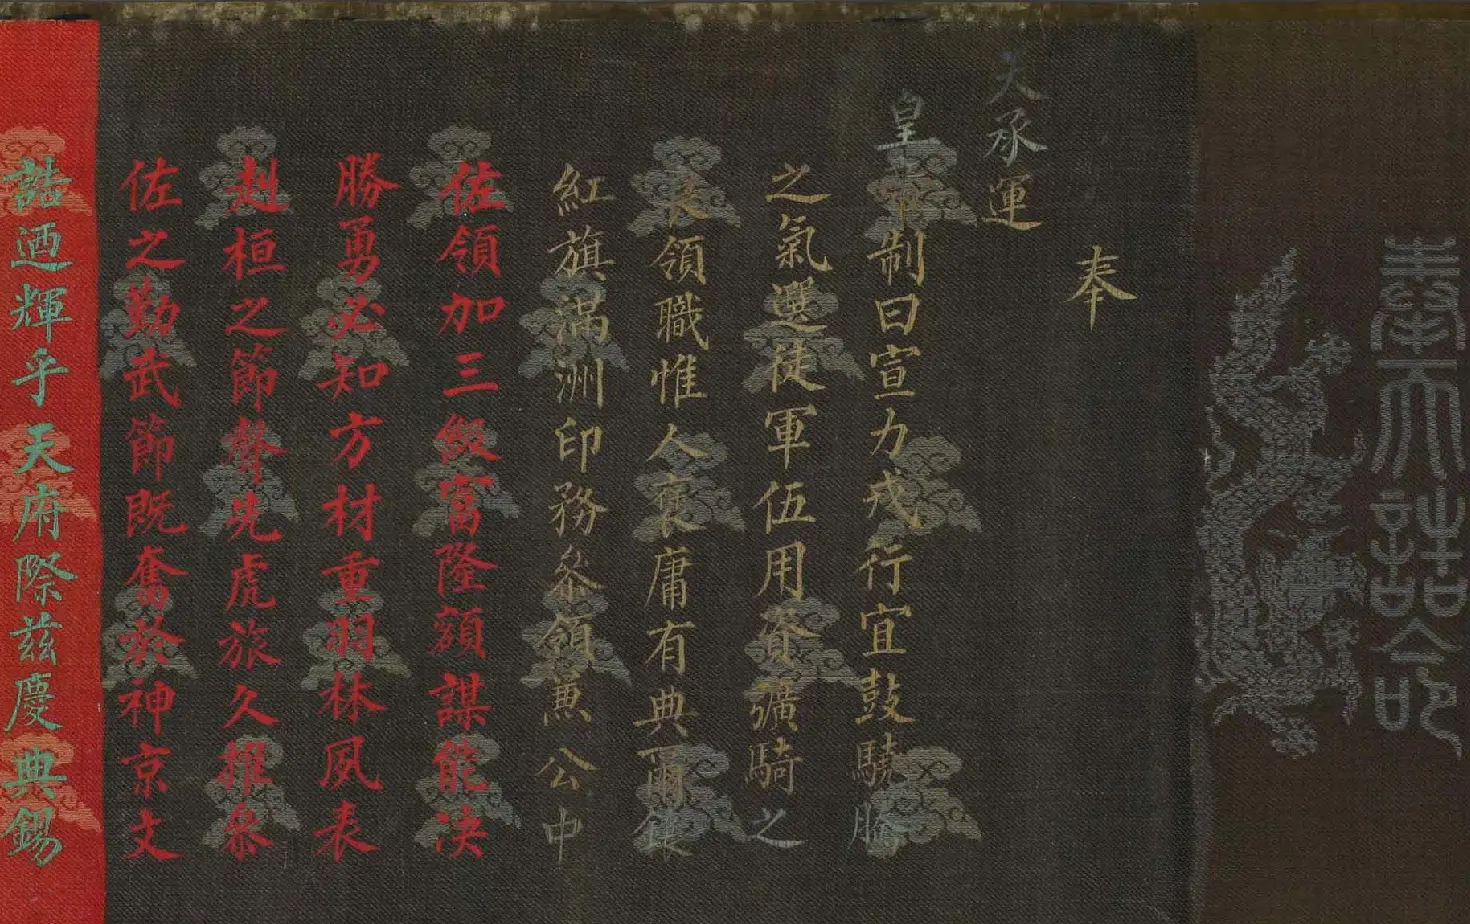 奉天誥命
奉
天承運
皇帝制曰宣力戎行宜鼓驍騰
之氣選徒軍伍用資彍騎之
長領職惟人褒庸有典爾鑲
紅旗滿洲印務叅領兼公中
佐領加三級富隆額謀能决
勝勇必知方材重羽林夙表
赳桓之節聲先虎旅久推叅
佐之勤武節既奮於神京文
誥迺輝乎天府際兹慶典錫